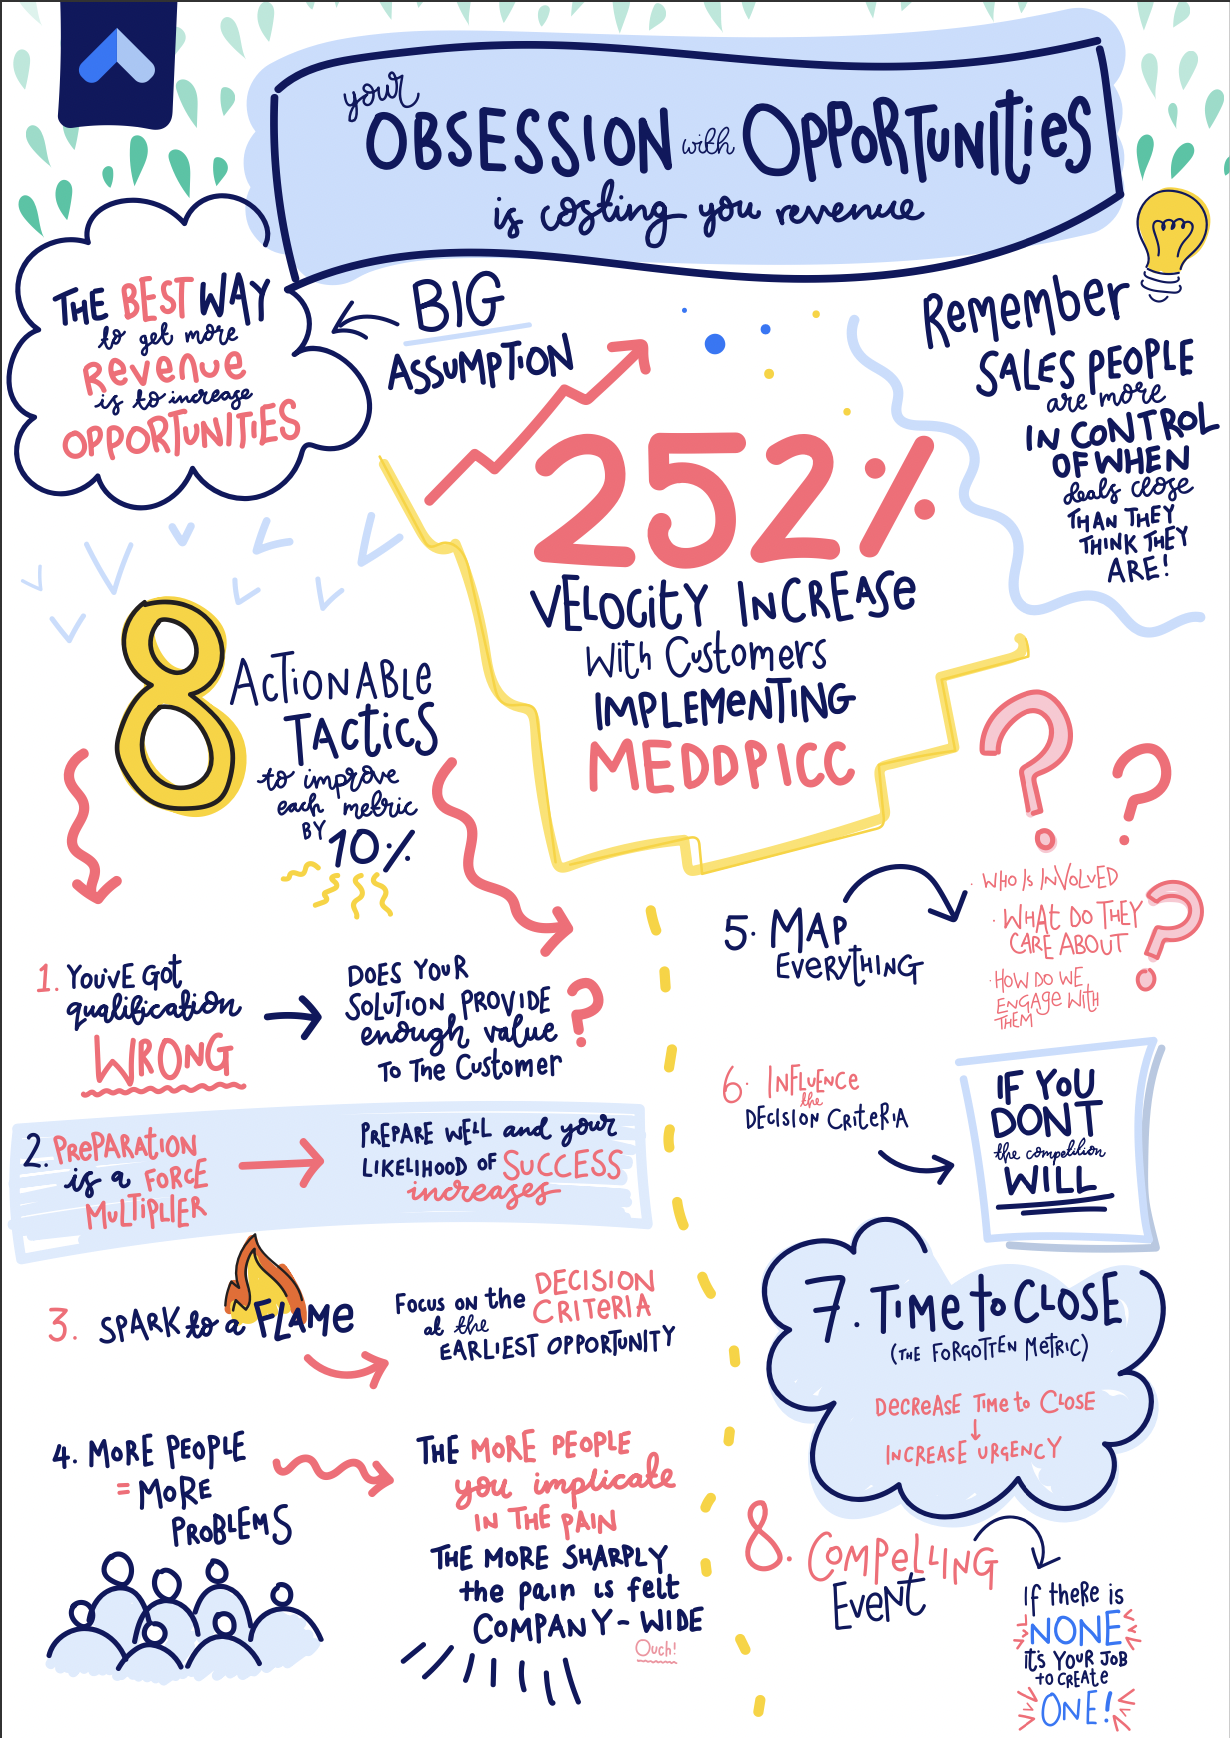 your
OBSESSION with OPPORTUNITIES
is costing you revenue
THE BEST WAY
to get more
Revenue
is to increase
OPPORTUNITIES
BIG
ASSUMPTION
Remember
SALES PEOPLE
are more
IN CONTROL
OF WHEN
deals close
THAN THEY
THINK THEY
ARE!
252%
VELOCITY INCREASE
With Customers
IMPLEMENTING
MEDDPICC
8
ACTIONABLE
TACTICS
to improve
each metric
BY 10%
1. YOU'VE GOT
qualification
WRONG
DOES YOUR
SOLUTION PROVIDE
enough value
TO The Customer
?
2. PREPARATION
is a FORCE
MULTIPLIER
PREPARE WELL and your
LIKELIHOOD OF SUCCESS
increases
3. SPARK to a FLAME
FOCUS ON the DECISION
CRITERIA
at the
EARLIEST OPPORTUNITY
4. MORE PEOPLE
= MORE
PROBLEMS
THE MORE PEOPLE
you implicate
IN THE PAIN
THE MORE SHARPLY
the pain is felt
COMPANY-WIDE
Ouch!
5. MAP
EVERYTHING
? ?
· WHO IS INVOLVED
· WHAT DO THEY
CARE ABOUT
?
· HOW DO WE
ENGAGE WITH
THEM
6. INFLUENCE
the
DECISION CRITERIA
IF YOU
DONT
the competition
WILL
7. TIME to CLOSE
(THE FORGOTTEN METRIC)
DECREASE TIME to CLOSE
INCREASE URGENCY
8. COMPELLING
EVENT
If there is
NONE
it's YOUR JOB
to CREATE
ONE!